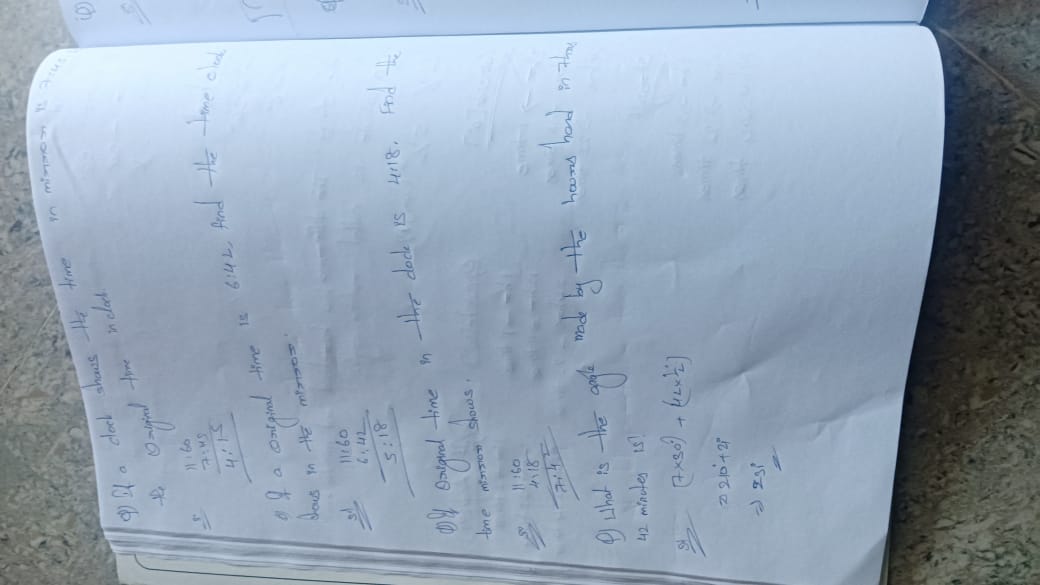 Q) If a clock shows the time in mirror is 7:45
the Original time in clock.
11:60
7:45
4:15
Q) If a Original time is 6:42, find the time clock
shows in the mirror.
11:60
6:42
5:18
Q) If Original time in the clock is 4:18. Find the
time mirror shows.
11:60
4:18
7:42
Q) What is the angle made by the hours hand in 7hrs
42 minutes is!
[7×30°) + (42×½]
⇒ 210 + 21
⇒ 231